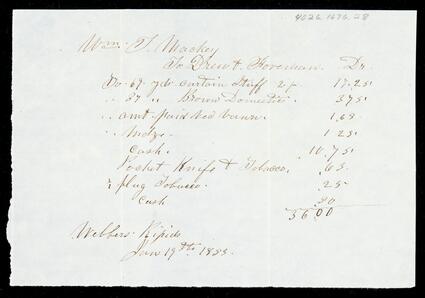 4026.1676.28
Wm. T. Mackey
To Drew & Foreman Dr.
To 69 yds curtain Stuff 25 17.25
" 37 " Brown Domestic 3.75
" amt paid 1.65
" Mdze. 1.25
Cash. 10.75
Pocket Knife & Tobacco. .65
" plug Tobacco. .25
Cash .20
36.00
Webbers Rapids
Jan 19th 1853